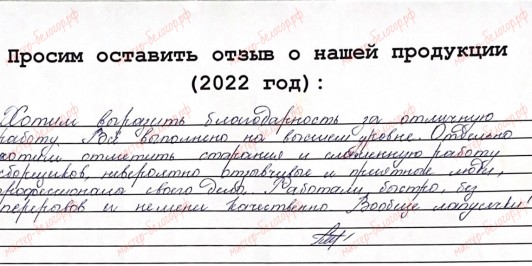 Просим оставить отзыв о нашей продукции
(2022 год):
Хотим выразить благодарность за отличную
работу. Всё выполнено на высшем уровне. Отдельно
хотим отметить старания и слаженную работу
сборщиков, невероятно отзывчивые и приятные люди,
профессионалы своего дела. Работали быстро, без
перерывов и не менее качественно. Вообще лапусечки!
мистер-белогор.рф